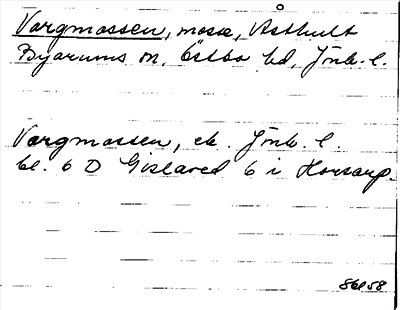 Vargmossen, mosse, Åsthult
Byarums sn, Östbo hd, Jönk. l.
Vargmossen, ek. Jönk. l.
bl. 6 D Gislaved 6 i Horsarp.